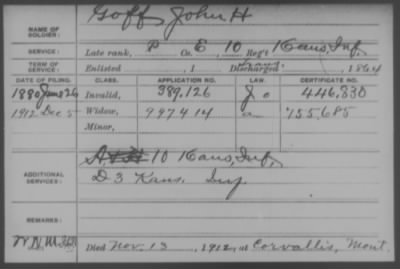 NAME OF SOLDIER: Goff, John H
SERVICE: Late rank, P Co. E, 10 Reg't Kans. Inf.
TERM OF SERVICE: Enlisted , 1 Discharged Trans. , 1864
DATE OF FILING. CLASS. APPLICATION NO. LAW. CERTIFICATE NO.
1880 June 26 Invalid, 389,126 446,330
1912 Dec 5 Widow, 997414 755,685
Minor,
ADDITIONAL SERVICES: 10 Kans. Inf.
D 3 Kans. Inf
REMARKS:
Died Nov. 13, 1912, at Corvallis, Mont.